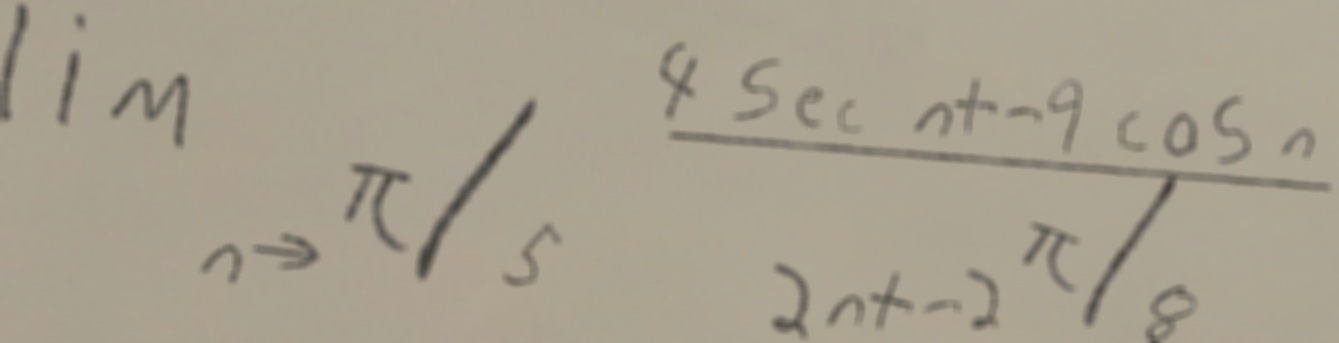 lim n→ π/5 4 Sec nt-9 cos n
2nt-2 π/8